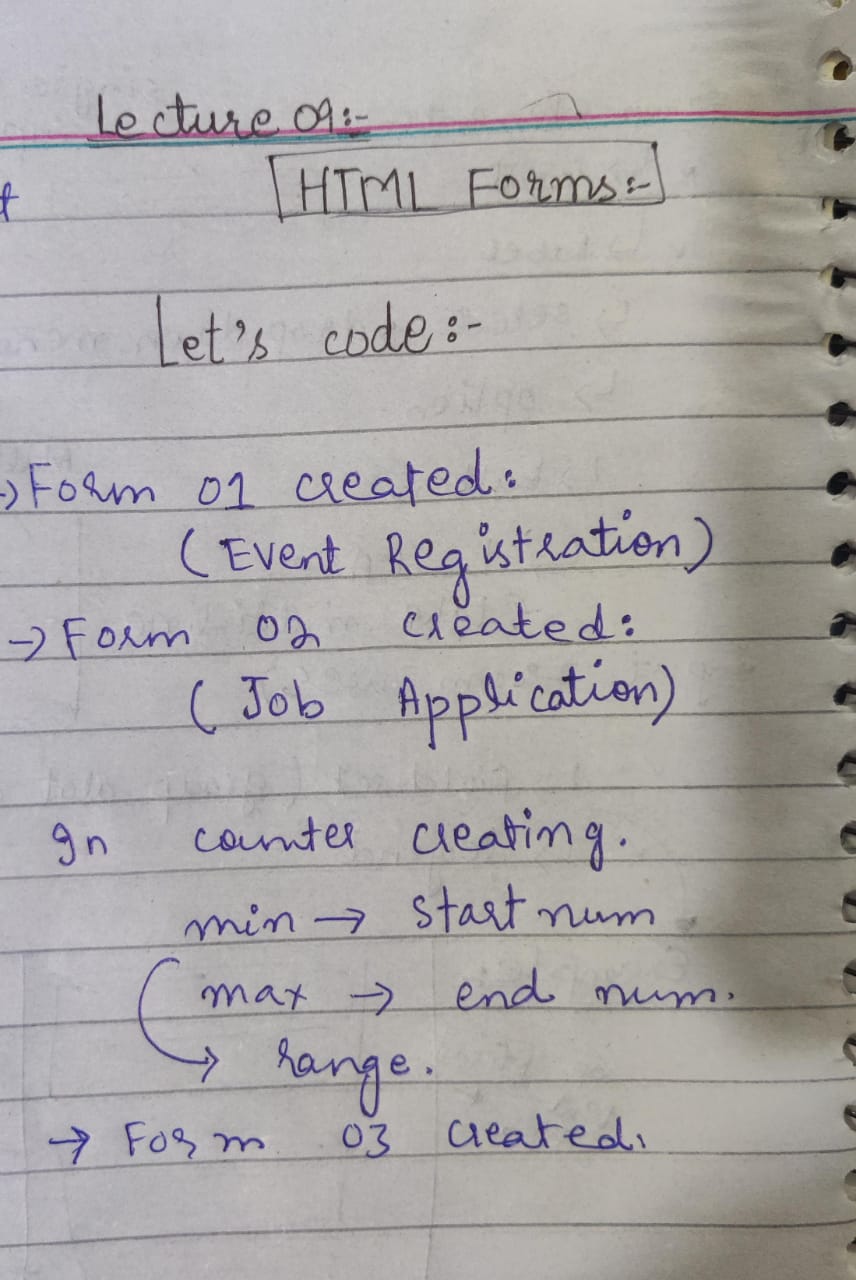 Lecture 09:-
HTML Forms:-
Let's code:-
→ Form 01 created:
(Event Registration)
→ Form 02 created:
(Job Application)
In counter creating.
min → start num
max → end num.
→ range.
→ Form 03 created.